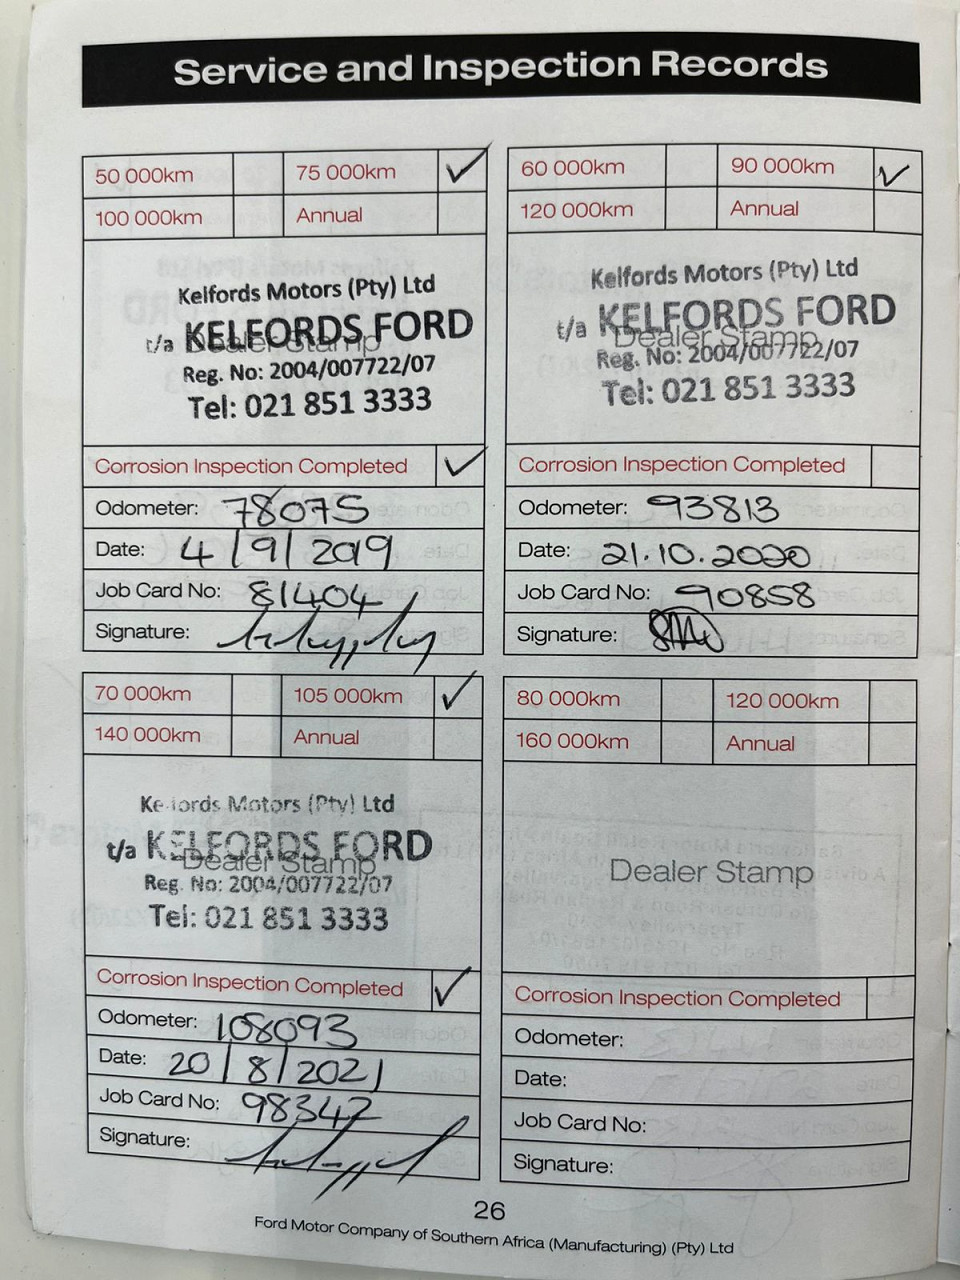 Service and Inspection Records
50 000km 75 000km ✓
100 000km Annual
Kelfords Motors (Pty) Ltd
t/a KELFORDS FORD
Dealer Stamp
Reg. No: 2004/007722/07
Tel: 021 851 3333
Corrosion Inspection Completed ✓
Odometer: 78075
Date: 4/9/2019
Job Card No: 81404
Signature:
60 000km 90 000km ✓
120 000km Annual
Kelfords Motors (Pty) Ltd
t/a KELFORDS FORD
Dealer Stamp
Reg. No: 2004/007722/07
Tel: 021 851 3333
Corrosion Inspection Completed
Odometer: 93813
Date: 21.10.2020
Job Card No: 90858
Signature:
70 000km 105 000km ✓
140 000km Annual
Kelfords Motors (Pty) Ltd
t/a KELFORDS FORD
Dealer Stamp
Reg. No: 2004/007722/07
Tel: 021 851 3333
Corrosion Inspection Completed ✓
Odometer: 108093
Date: 20/8/2021
Job Card No: 98342
Signature:
80 000km 120 000km
160 000km Annual
Dealer Stamp
Corrosion Inspection Completed
Odometer:
Date:
Job Card No:
Signature:
26
Ford Motor Company of Southern Africa (Manufacturing) (Pty) Ltd